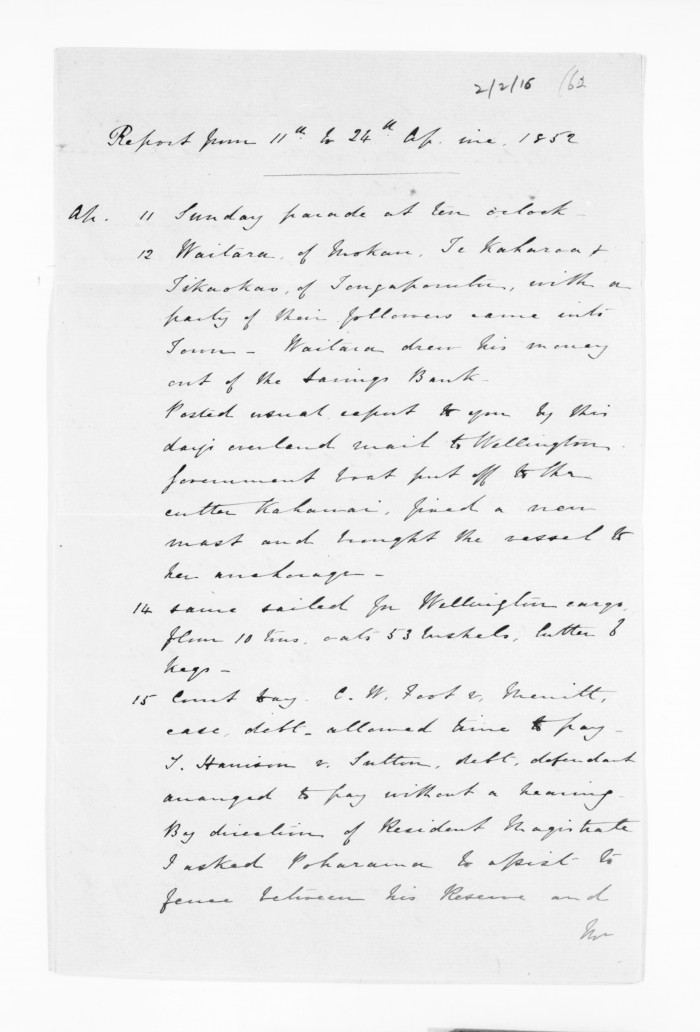 2/2/16 (62
Report from 11th to 24th Ap. inc. 1852
Ap. 11 Sunday parade at ten o'clock -
12 Waitara, of Mokau, Te Kaharoa &
Tikaokao, of Tongaporutu, with a
party of their followers came into
Town - Waitara drew his money
out of the Savings Bank -
Posted usual report to you by this
day's overland mail to Wellington.
Government boat put off to the
cutter Kahawai, fixed a new
mast and brought the vessel to
her anchorage -
14 Same sailed for Wellington cargo,
flour 10 tons, oats 53 bushels, butter 6
kegs -
15 Court Day. C. W. Foot v. Merritt,
case, debt - allowed time to pay -
T. Harrison v. Sutton, debt, defendant
arranged to pay without a hearing -
By direction of Resident Magistrate
I asked Poharama to assist to
fence between his Reserve and